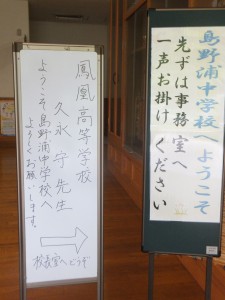 島野浦中学校へようこそ
先ずは事務室へ
一声お掛けください
鳳凰高等学校
久永守先生
ようこそ島野浦中学校へ
よろしくお願いします。
校長室へどうぞ